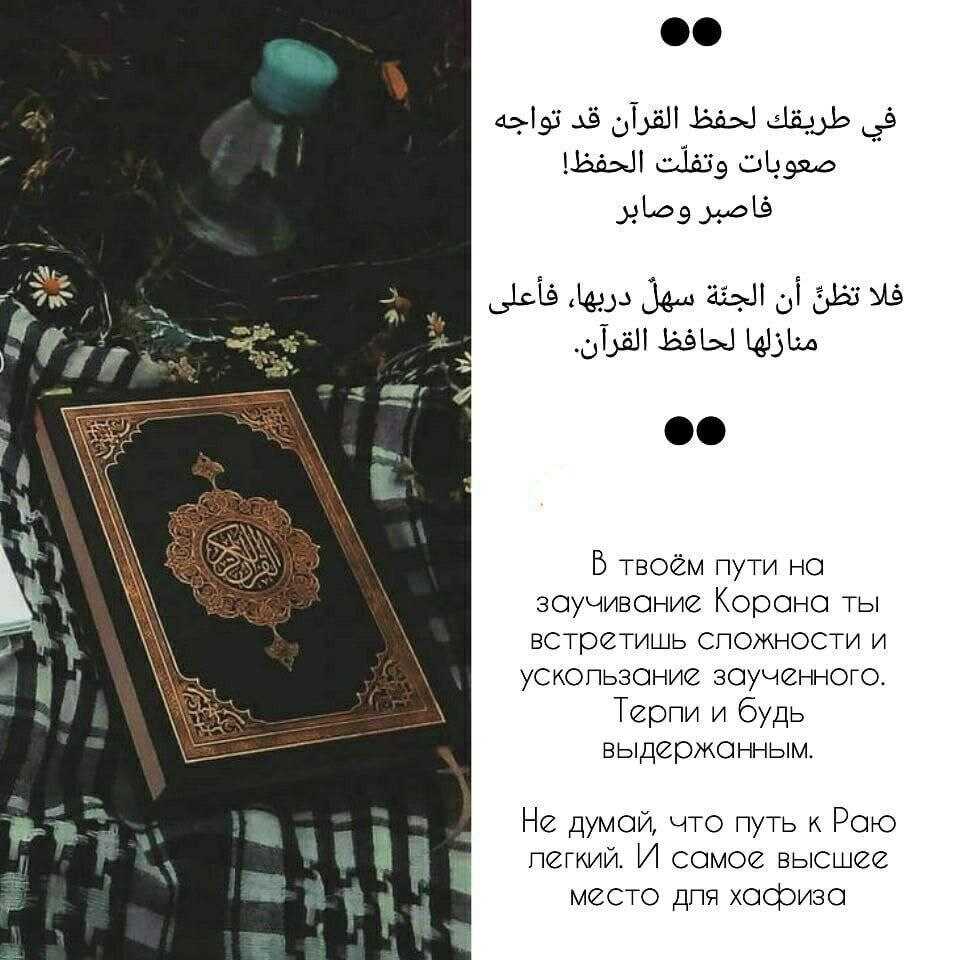 في طريقك لحفظ القرآن قد تواجه
صعوبات وتفلّت الحفظ!
فاصبر وصابر
فلا تظنِّ أن الجنّة سهلٌ دربها، فأعلى
منازلها لحافظ القرآن.
В твоём пути на
заучивание Корана ты
встретишь сложности и
ускользание заученного.
Терпи и будь
выдержанным.
Не думай, что путь к Раю
легкий. И самое высшее
место для хафиза